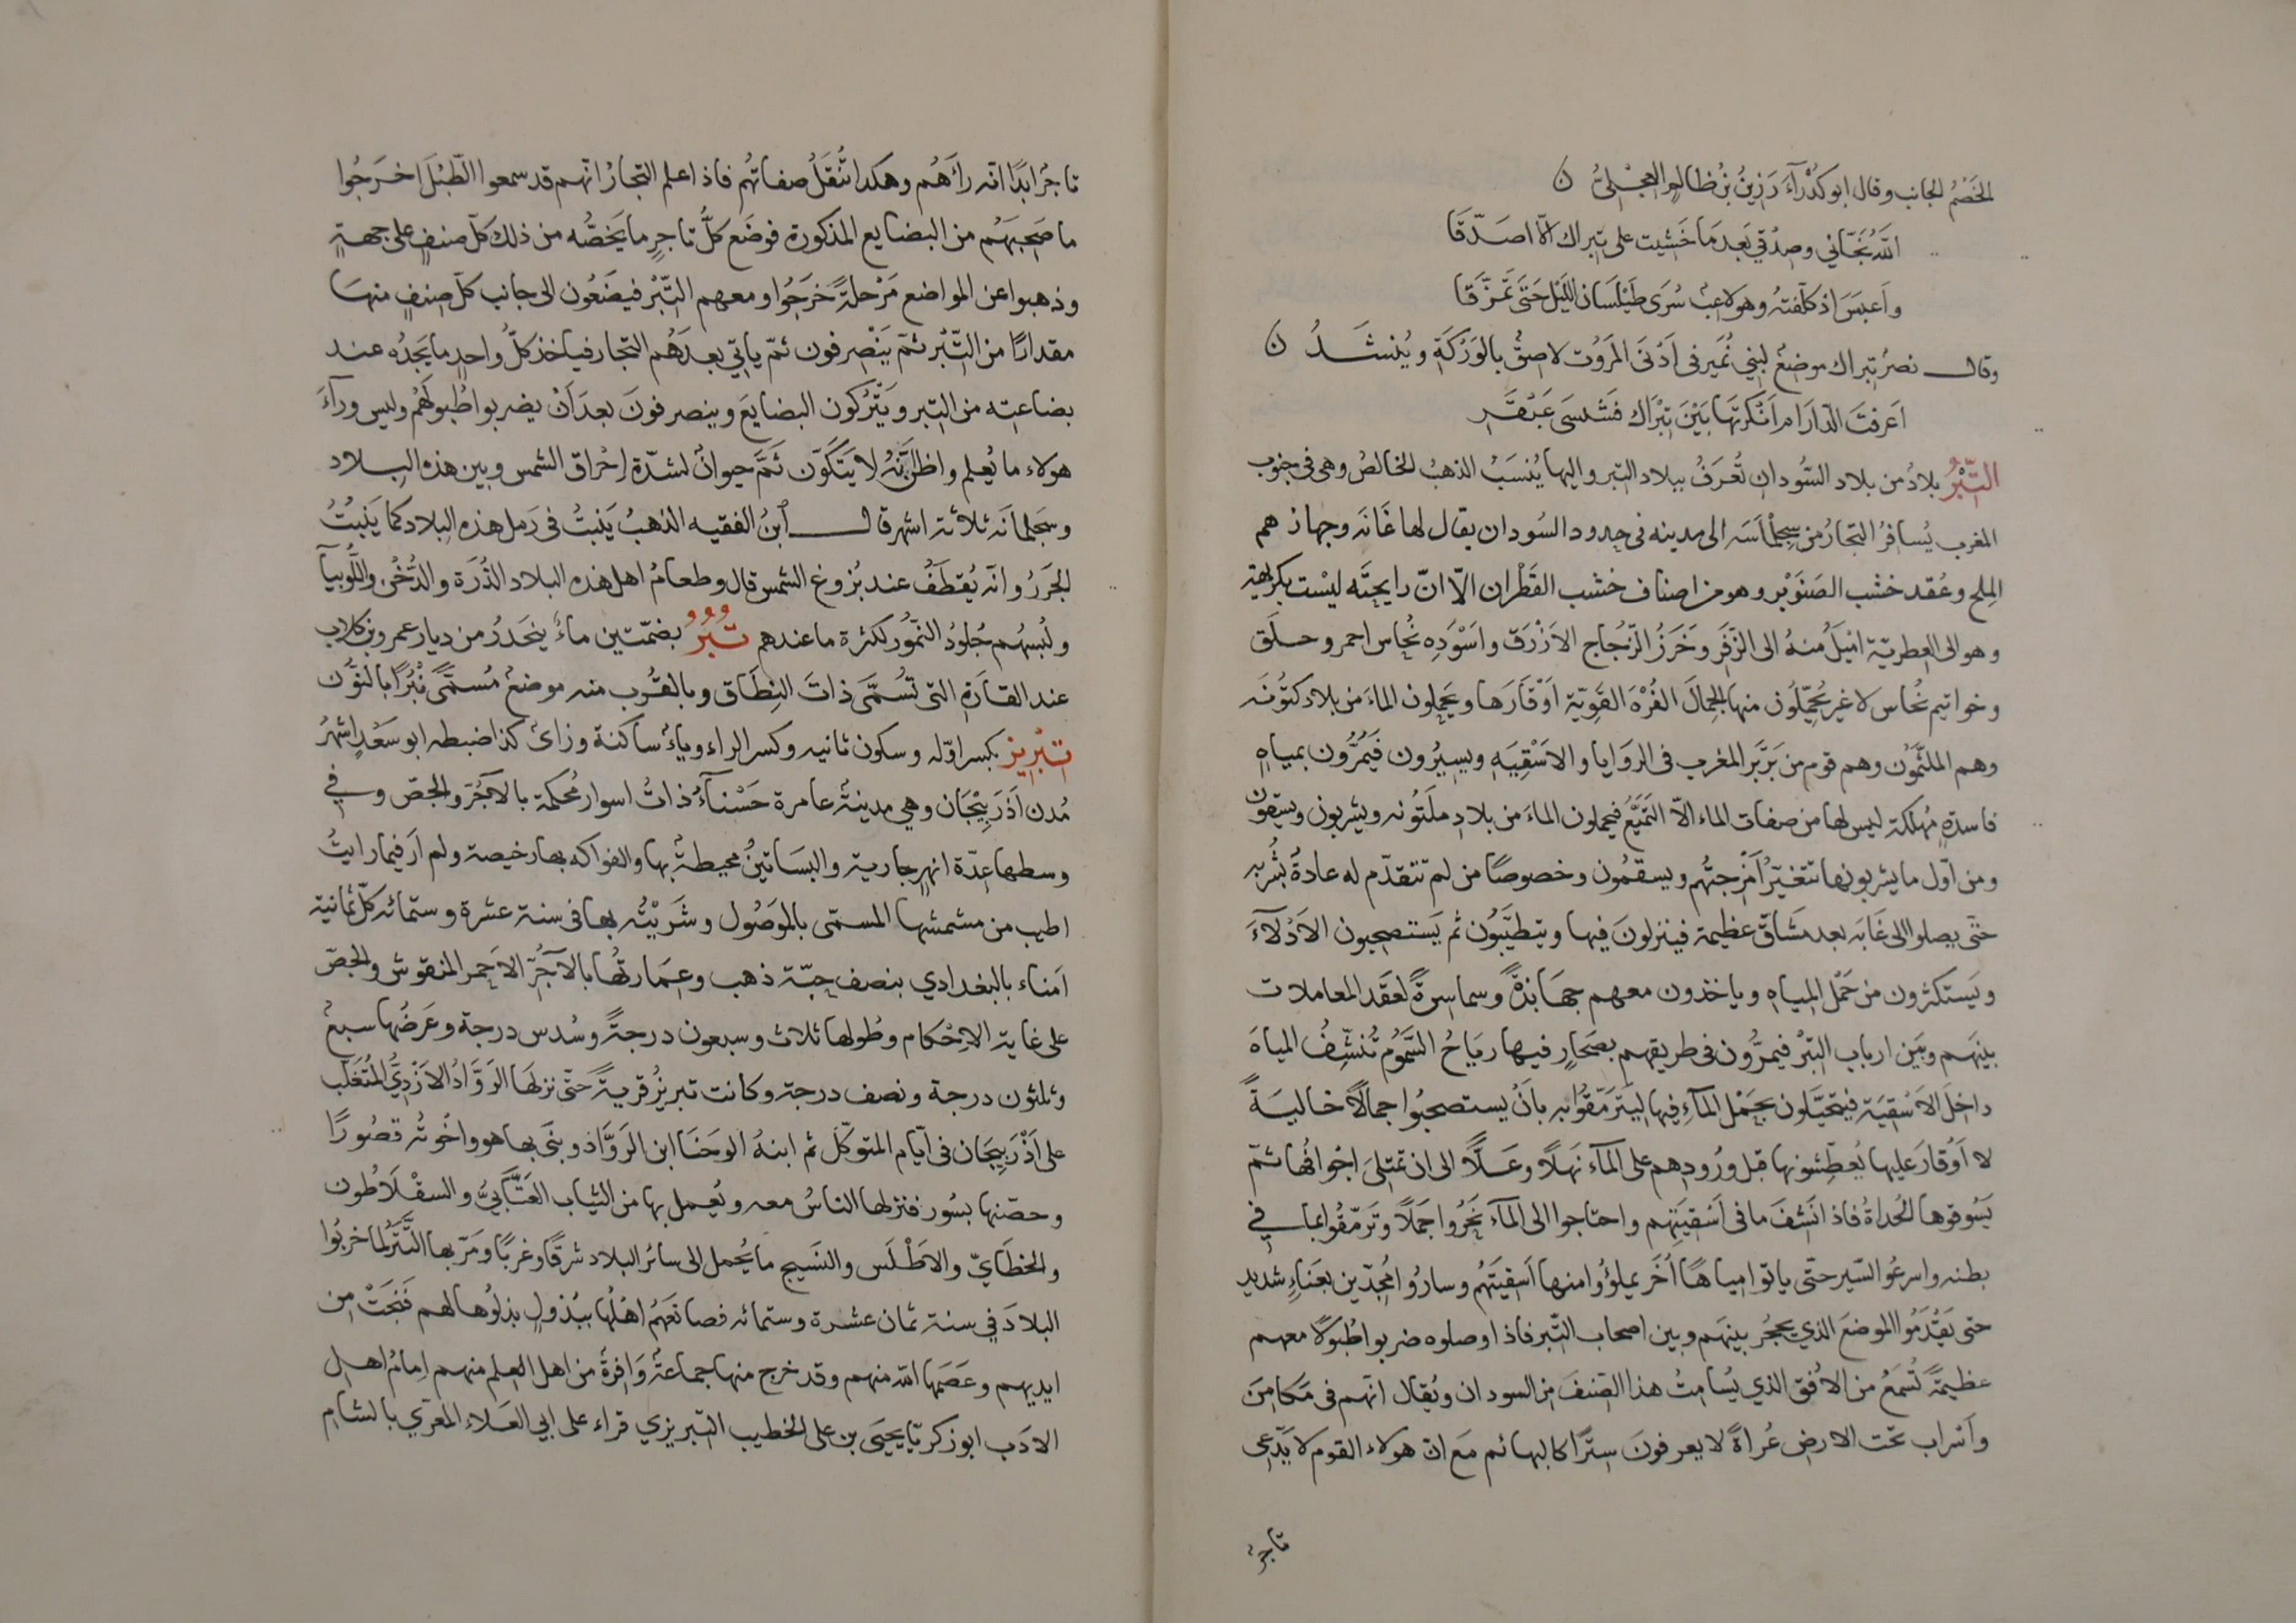 الخَضْمُ الجانب وقال ابو كَدْرآءَ رَزِينُ بْنُ ظالمٍ العِجْلِيُّ ن
اللهُ نَجّاني وصِدْقي بَعدَ مَا خَشيت على تِبراك الّا اصَدّقَا
واَعيَسَ اذ كلّفتهُ وهو لاغبٌ سُرَى طَيْلَسَان اللَيْل حَتَى تَمزّقَا
وقال نصرٌ تِبراك موضعٌ لبَني نُمَير فى اَدْنَى المَرّوُت لاصِقٌ بالوَرْكَةِ ويُنشَدُ ن
اَعَرفتَ الدّارَ ام اَنكَرتهَا بَيْنَ تِبْرَاك فَشَسّى عَبَقَّر
التِّبْرُ بلادٌ من بلاد السُّودان تُعرَفُ ببلاد التبر واليها يُنسَبُ الذهبُ الخالصُ وهى فى جنوب
المغرب يُسافرُ التجارُ من سِجِلْمَاسَه الى مدينه فى حدود السُودان يقال لها غَانَه وجهازهم
المِلح وعُقد خشب الصَنَوْبر وهو من اصناف خشب القَطْران الّا انّ رايحتَه ليْست بكريهة
وهو الى العِطريّة اَميَلُ منهُ الى الزَّفَر وخَرَزُ الزّجُاج الاَزْرَق واسْوَدِه نُحاس احمر وحلَق
وخواتيم نُحاس لا غير يُحمِّلوُن منها الجِمالَ الفُرْهَ القَوِيّة اَوْقَارَها ويَحمِلون الماءَ من بلاد كَتُونَه
وهم الملثَّمُون وهم قوم من بَربَر المغرب فى الرَوايا والاَسْقِيَه ويسيرُون فَيَمُرُّون بمياهٍ
فاسدةٍ مُهلكة ليس لها من صفات الماء الاّ التَمَيُّع فيحملون الماءَ من بلادِ ملَتُونه ويشربون ويسقون
ومن اوّل ما يشربونها تتغيّرُ اَمْزِجتُهم ويسقمُون وخصوصًا من لم تتقدّم له عادةٌ بشُربه
حتّى يصلوا الى غَانَه بعد مَشاقّ عظيمة فينزلونَ فيها ويتطَيّبُون ثم يَستصحبون الاَدْلاءَ
ويَستكثرون من حَمْل المياهِ وياخذون معهم جهَابذةً وسماسرةً لعَقد المعاملات
بينَهم وبَين ارباب التبْر فيمرُّون فى طريقهم بصَحَارٍ فيها ريَاحُ السَّمُوم تُنشّفُ المياهَ
داخلَ الاَسْقِيَة فيتحَيَّلون بحَمْل المآءِ فيها ليتَرَمّقُوا به بأنْ يستصحبُوا جمالًا خاليةً
لا اَوْقارَ عليها يُعطِّشونها قبل ورُودِهم على المآء نَهلًا وعَلًّا الى ان تمتلىَ اجْوافُها ثمّ
يَسُوقوها الحُداةُ فاذا نَشَفَ ما فى اَسْقِيَتِهم واحتاجوا الى المآء نَحَرُوا جَمَلًا وتَرَمّقُوا بما فى
بطنه واسرعُوا السّير حتّى ياتوا مياهًا اُخَر يملؤُوا منها اَسقِيَتَهُم وسارُوا مُجِدّين بعَنَاءٍ شديد
حتى يَقْدَمُوا الموضعَ الذى يحجُز بينَهم وبين اصحاب التّبر فاذا وصلوه ضربوا طُبُولًا معهم
عظيمةً تُسْمَعُ من الاُفق الذى يُسامِتُ هذا الصّنفَ من السودان ويُقال انّهم فى مكامِنَ
واَسْراب تحت الارض عُراةً لا يعرفونَ سِترًا كالبهائم مَع انّ هولاء القوم لا يَدَعُى
تاجرٌ
تاجرٌ ابدًا انّه رآهُم وهكذا تُنقَلُ صفاتُهم فاذا علم التجارُ انّهم قد سمعوا الطّبْلَ اخرَجُوا
ما صَحِبَهُم من البضايع المذكورة فوضَع كلُّ تاجرٍ ما يَخصُّه من ذلك كلّ صنفٍ على جهةٍ
وذهبوا عن المواضع مَرْحلةً خَرجُوا ومعهم التّبْر فيضَعُون الى جانب كلّ صِنفٍ منها
مقدارًا من التّبْر ثمّ يَنْصرفون ثمّ ياتي بعدَهُم التجار فياخذ كلُّ واحدٍ ما يَجِدُه عند
بضاعته من التبر ويَتْركون البضايعَ وينصرفونَ بعدَ اَنْ يضربوا طُبولَهُم وليس ورآءَ
هولاء ما يُعلم واظنُّ اَنّهُ لا يَتَكوّن ثَمَّ حيوانٌ لشدّة اِحْراق الشمس وبين هذه البلاد
وسجلماَنه ثلاثة اشهر قال ابنُ الفقيه الذهبُ يَنبتُ فى رَمل هذه البلاد كما يَنبُتُ
الجَزَرُ وانّه يُقطَفُ عند بُزوغ الشمس قال وطعامُ اهل هذه البلاد الذُّرَة والدُّخْن واللُّوبيآ
ولُبسُهم جُلودُ النمُور لكثرة ما عندهم تُبُرُ بضمّتين ماءٌ ينحدُر من ديار عمرو بن كلاب
عند القارَة التى تُسَمَّى ذاتَ النِطَاق وبالقُرب منه موضعٌ مُسمَّى نُبْرًا بالنوُن
تِبْرِيز بكسر اوّله وسكون ثانيه وكسر الراء وياءٌ ساكنة وزاىٌ كذا ضبطه ابو سَعْدٍ اشهرُ
مُدن اَذْرَبيْجَان وهي مدينةٌ عامرة حَسْنآءُ ذاتُ اسوار مُحكمة بالآجُرّ والجصّ وفي
وسطها عِدّة انهُرٍ جارية والبسَاتينُ محيطةٌ بها والفواكه بها رخيصة ولم اَرَ فيما رايتُ
اطيب من مشمشها المسمّى بالموَصُول وشَرَيْتُه بها فى سنة عشرة وستمائه كلّ ثمانية
اَمناء بالبغدادي بنصف حبّة ذهب وعِمَارتُها بالآجُرّ الاَحمر المنقوش والجصّ
على غاية الاِحْكام وطُولها ثلاث وسبعون درجةً وسُدس درجة وعَرضُها سبعٌ
وثلثون درجة ونصف درجة وكانت تبريزُ قريةً حتّى نزلهَا الرَوَّادُ الاَزْدِيُّ المُتَغلّب
على اَذْرَبيجَان فى ايّام المتوكّل ثم ابنهُ الوجَنَا ابن الرَوّاذ وبنَى بها هو واخْوتُه قصُورًا
وحصّنها بسُور فنزلها الناسُ معه ويُعمل بها من الثياب العَتّابيّ والسقْلَاطُون
والخطَايّ والاَطْلَس والنَسيج ما يُحمل الى سائر البلاد شرقًا وغربًا ومَرّ بها التَّتَرُ لمّا خرّبُوا
البلادَ فِي سنة ثمان عشرة وستمائه فصانَعَهُم اهْلُها ببُذولٍ بذلُوها لهم فَنَجَتْ من
ايديهم وعَصَمها الله منهم وقد خرج منها جماعةٌ وَافرةٌ من اهل العلم منهم اِمامُ اهل
الادَب ابو زكريّا يحيَى بن على الخطيب التّبريزي قراء على ابي العَلاء المعرّي بالشام